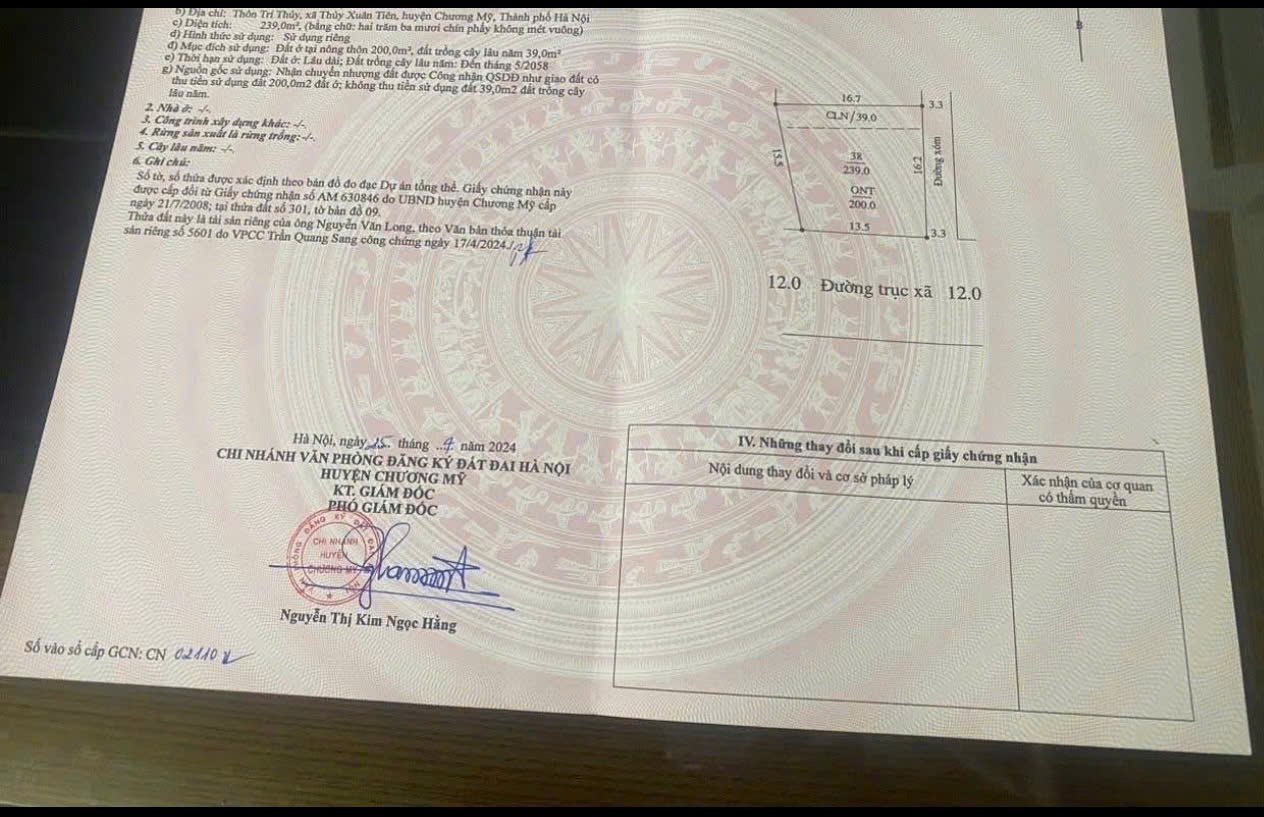 b) Địa chỉ: Thôn Trí Thủy, xã Thủy Xuân Tiên, huyện Chương Mỹ, Thành phố Hà Nội
c) Diện tích: 239,0m², (bằng chữ: hai trăm ba mươi chín phẩy không mét vuông)
d) Hình thức sử dụng: Sử dụng riêng
đ) Mục đích sử dụng: Đất ở tại nông thôn 200,0m², đất trồng cây lâu năm 39,0m²
e) Thời hạn sử dụng: Đất ở: Lâu dài; Đất trồng cây lâu năm: Đến tháng 5/2058
g) Nguồn gốc sử dụng: Nhận chuyển nhượng đất được Công nhận QSDĐ như giao đất có
thu tiền sử dụng đất 200,0m2 đất ở; không thu tiền sử dụng đất 39,0m2 đất trồng cây
lâu năm.
2. Nhà ở: -/-.
3. Công trình xây dựng khác: -/-.
4. Rừng sản xuất là rừng trồng: -/-.
5. Cây lâu năm: -/-.
6. Ghi chú:
Số tờ, số thửa được xác định theo bản đồ đo đạc Dự án tổng thể. Giấy chứng nhận này
được cấp đổi từ Giấy chứng nhận số AM 630846 do UBND huyện Chương Mỹ cấp
ngày 21/7/2008; tại thửa đất số 301, tờ bản đồ 09.
Thửa đất này là tài sản riêng của ông Nguyễn Văn Long, theo Văn bản thỏa thuận tài
sản riêng số 5601 do VPCC Trần Quang Sang công chứng ngày 17/4/2024./.
B
16.7
3.3
CLN/39.0
15.5
38
239.0
16.2
Đường xóm
ONT
200.0
13.5
3.3
12.0 Đường trục xã 12.0
Hà Nội, ngày 25 tháng 7 năm 2024
CHI NHÁNH VĂN PHÒNG ĐĂNG KÝ ĐẤT ĐAI HÀ NỘI
HUYỆN CHƯƠNG MỸ
KT. GIÁM ĐỐC
PHÓ GIÁM ĐỐC
CHI NHÁNH
HUYỆN
CHƯƠNG MỸ
Nguyễn Thị Kim Ngọc Hằng
Số vào sổ cấp GCN: CN 02110
IV. Những thay đổi sau khi cấp giấy chứng nhận
Nội dung thay đổi và cơ sở pháp lý
Xác nhận của cơ quan
có thẩm quyền